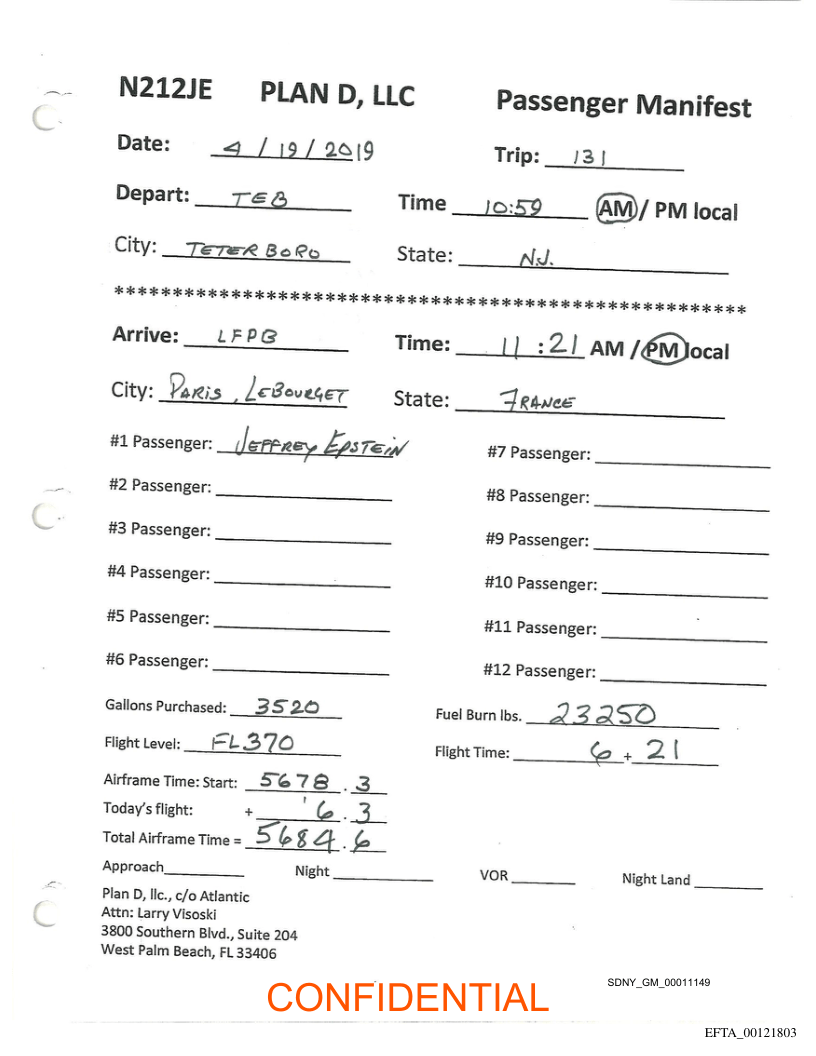 N212JE PLAN D, LLC Passenger Manifest
Date: 4 / 19 / 2019 Trip: 131
Depart: TEB Time 10:59 AM / PM local
City: TETERBORO State: N.J.
******************************************************
Arrive: LFPB Time: 11:21 AM / PM local
City: PARIS, LEBOURGET State: FRANCE
#1 Passenger: JEFFREY EPSTEIN #7 Passenger:
#2 Passenger: #8 Passenger:
#3 Passenger: #9 Passenger:
#4 Passenger: #10 Passenger:
#5 Passenger: #11 Passenger:
#6 Passenger: #12 Passenger:
Gallons Purchased: 3520 Fuel Burn lbs. 23250
Flight Level: FL370 Flight Time: 6 + 21
Airframe Time: Start: 5678.3
Today's flight: + 6.3
Total Airframe Time = 5684.6
Approach Night VOR Night Land
Plan D, llc., c/o Atlantic
Attn: Larry Visoski
3800 Southern Blvd., Suite 204
West Palm Beach, FL 33406
SDNY_GM_00011149
CONFIDENTIAL
EFTA_00121803